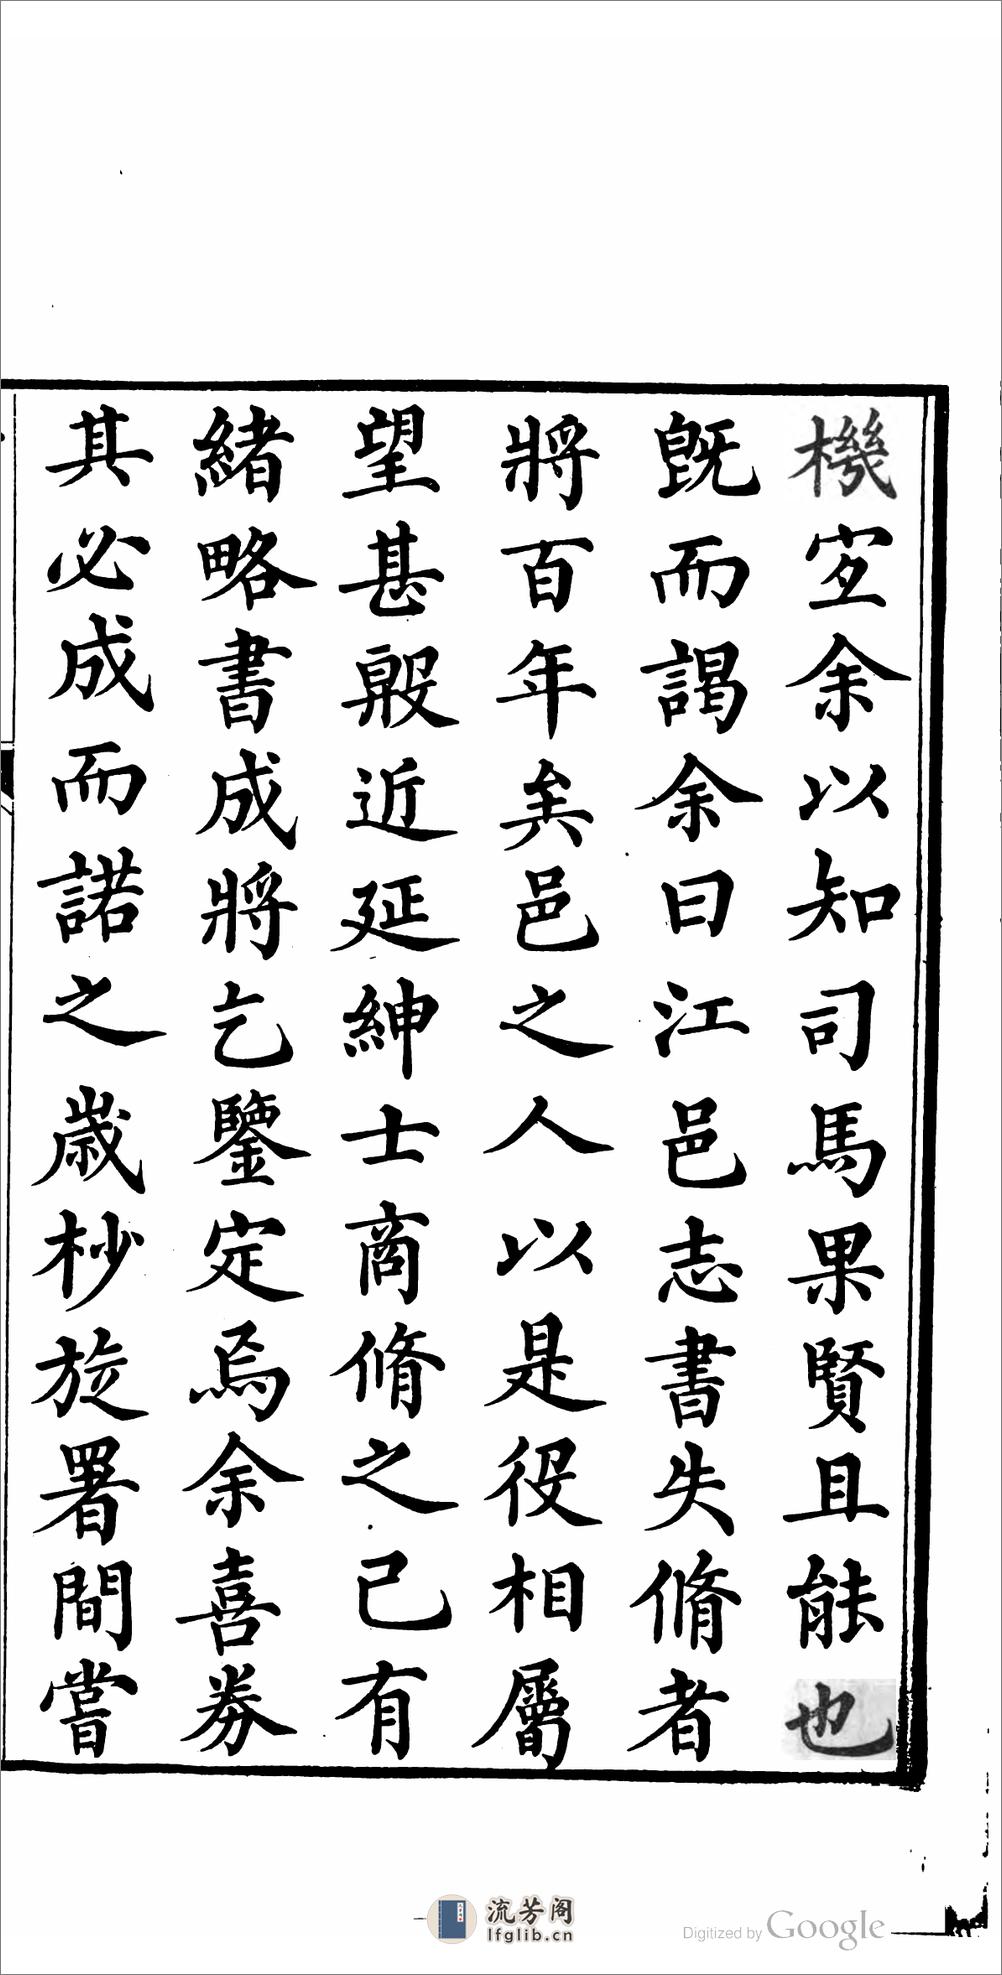 機宜余以知司馬果賢且能也
旣而謁余曰江邑志書失脩者
將百年矣邑之人以是役相屬
望甚殷近延紳士商脩之已有
緒略書成將乞鑒定焉余喜券
其必成而諾之歲杪旋署間嘗
流芳阁
lfglib.cn
Digitized by Google